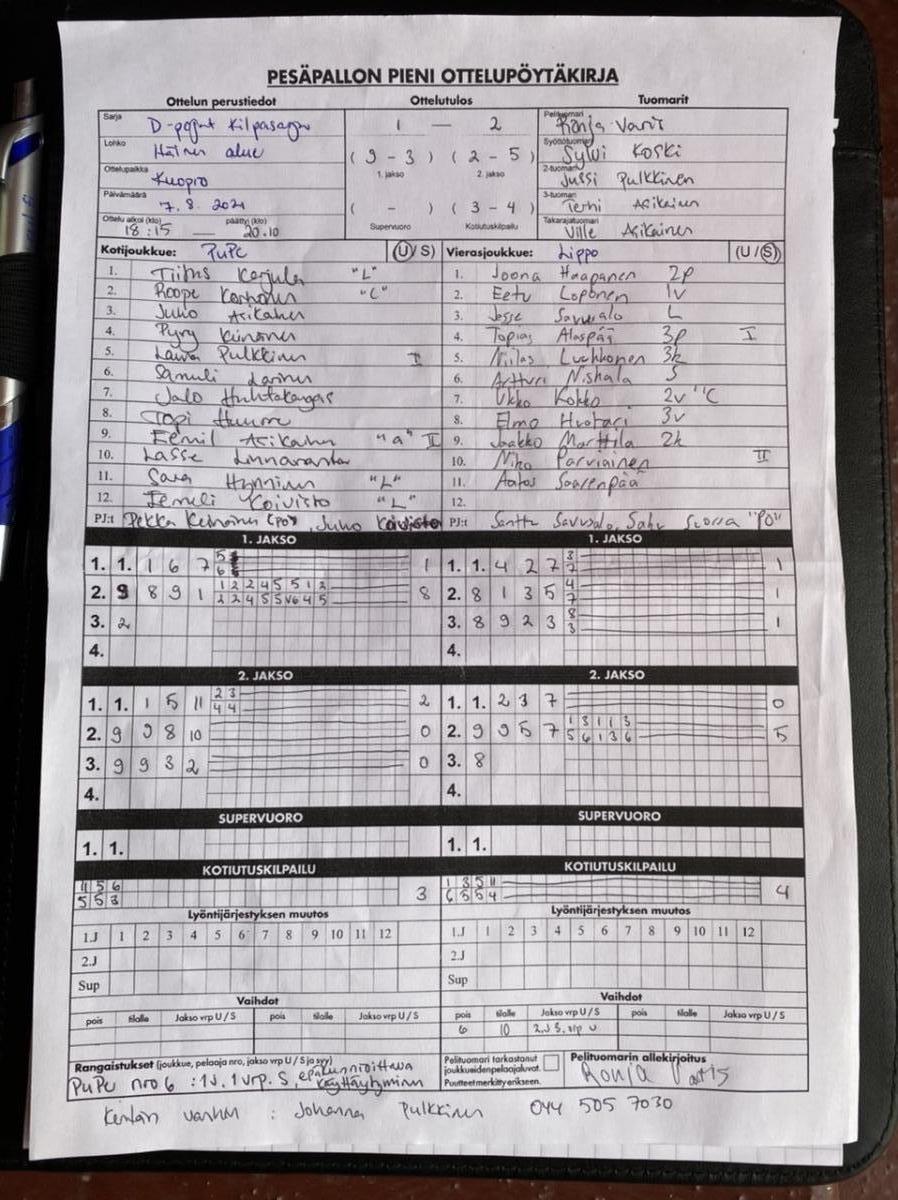 PESÄPALLON PIENI OTTELUPÖYTÄKIRJA
Ottelun perustiedot Ottelutulos Tuomarit
Sarja D-pojat Kilpasarja 1 — 2 Pelituomari Ronja Varis
Lohko Itäinen alue Syöttötuomari Sylvi Koski
( 9 - 3 ) ( 2 - 5 )
1. jakso 2. jakso
Ottelupaikka Kuopio 2-tuomari Jussi Pulkkinen
Päivämäärä 7.8.2021 ( - ) ( 3 - 4 ) 3-tuomari Terhi Asikainen
Ottelu alkoi (klo) 18:15 — päättyi (klo) 20.10 Supervuoro Kotiutuskilpailu Takarajatuomari Ville Asikainen
Kotijoukkue: PuPe (U/S) Vierasjoukkue: Lippo (U/S)
1. "L" 1. Joona Haapanen 2p
2. Roope Korhonen "C" 2. Eetu Loponen 1v
3. Juho Asikainen 3. Jesse Savusalo L
4. Pyry Keinonen 4. Topias Alaspää 3p I
5. Pulkkinen II 5. Niilas Luukkonen 3k
6. Samuli Larinen 6. Artturi Nishala S
7. Jalo Huhtakangas 7. Ukko Kokko 2v "C
8. Topi Huurre 8. Elmo Huotari 3v
9. Eemil Asikainen "a" II 9. Jaakko Marttila 2k
10. Lasse Linnaranta 10. Niko Parviainen II
11. Sara Hynninen "L" 11. Aatos Saarenpää
12. Eemeli Koivisto "L" 12.
PJ:t Pekka Keinonen (PO), Juho Koivisto PJ:t Santtu Savusalo, Saku Suorsa "PO"
1. JAKSO 1. JAKSO
1. 1. 1 6 7 5 6 1 1. 1. 4 2 7 7 3 7 1
2. 9 8 9 1 1 2 2 4 5 5 1 2 8 2. 8 1 3 5 4 7 1
2 2 4 5 5 6 4 5
3. 2 3. 8 9 2 3 8 3 1
4. 4.
2. JAKSO 2. JAKSO
1. 1. 1 5 11 2 3 2 1. 1. 2 3 7 0
4 4
2. 9 9 8 10 0 2. 9 9 5 7 1 3 1 1 3 5
5 6 1 3 6
3. 9 9 3 2 0 3. 8
4. 4.
SUPERVUORO SUPERVUORO
1. 1. 1. 1.
KOTIUTUSKILPAILU KOTIUTUSKILPAILU
11 5 6 3 1 3 5 11 4
5 5 3 6 5 5 4
Lyöntijärjestyksen muutos Lyöntijärjestyksen muutos
1.J 1 2 3 4 5 6 7 8 9 10 11 12 1.J 1 2 3 4 5 6 7 8 9 10 11 12
2.J 2.J
Sup Sup
Vaihdot Vaihdot
pois tilalle Jakso vrp U / S pois tilalle Jakso vrp U / S pois tilalle Jakso vrp U / S pois tilalle Jakso vrp U / S
6 10 2.J 3. vrp U
Rangaistukset (joukkue, pelaaja nro, jakso vrp U / S ja syy)
PuPe nro 6 : 1J. 1 vrp. S, epäkunnioittava käyttäytyminen
Pelituomari tarkastanut joukkueiden pelaajaluvat.
Puutteet merkitty erikseen.
Pelituomarin allekirjoitus
Ronja Varis
Kentän vanhin : Johanna Pulkkinen 044 505 7030